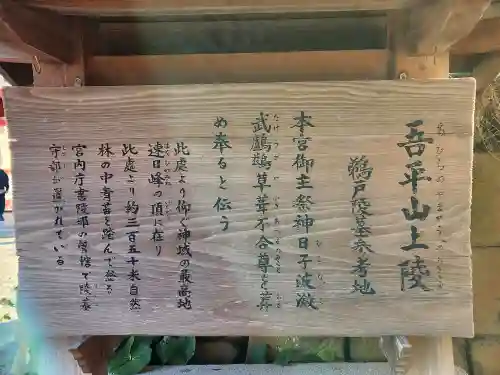 吾平山上陵
鵜戸陵墓参考地
本宮御主祭神日子波瀲
武鸕鷀草葺不合尊を葬
め奉ると伝う
此處より御神域の最高地
速日峰の頂に在り
此處より約三百五十米自然
林の中青苔を踏んで登る
宮内庁書陵部の所管で陵墓
守部が置かれている